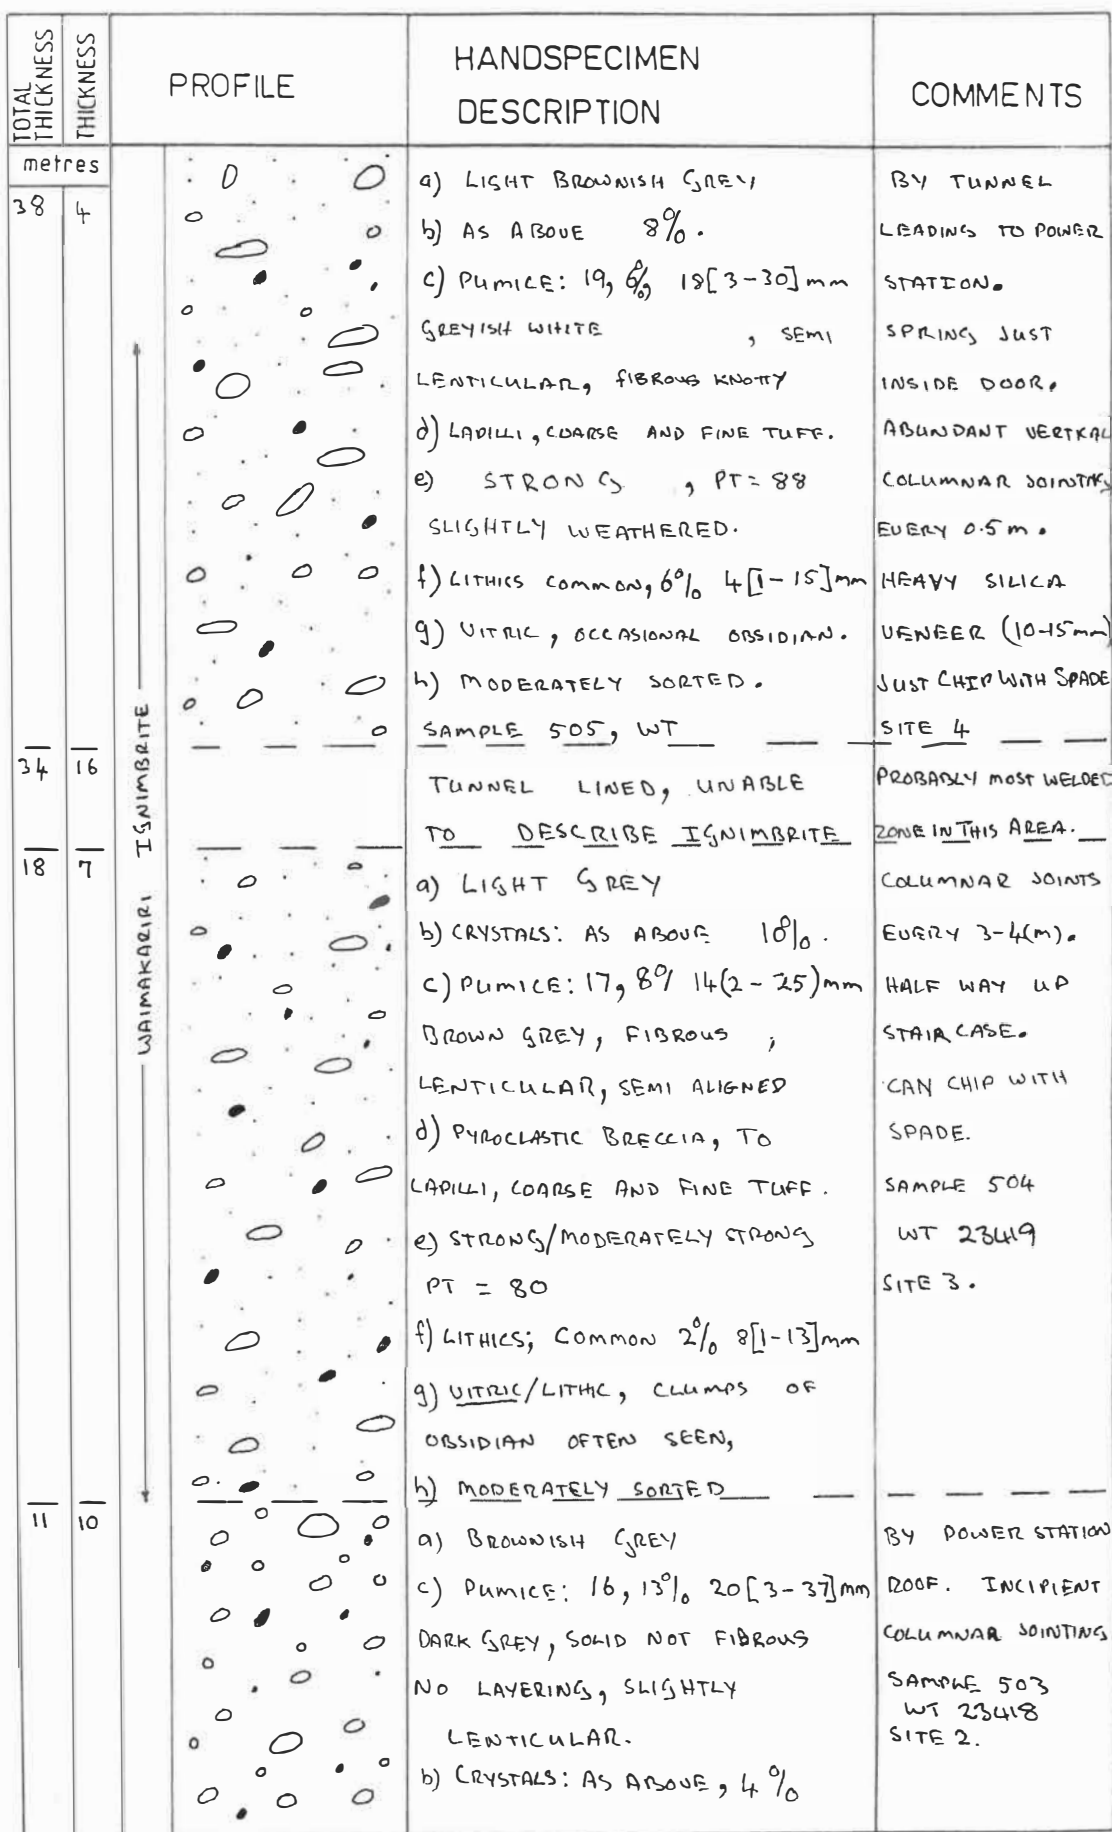 TOTAL THICKNESS
THICKNESS
PROFILE
HANDSPECIMEN
DESCRIPTION
COMMENTS
metres
38 4
WAIMAKARIRI IGNIMBRITE
a) LIGHT BROWNISH GREY
b) AS ABOVE 8%.
c) PUMICE: 19, 6%, 18[3-30]mm
GREYISH WHITE , SEMI
LENTICULAR, FIBROUS KNOTTY
d) LAPILLI, COARSE AND FINE TUFF.
e) STRONG , PT = 88
SLIGHTLY WEATHERED.
f) LITHICS COMMON, 6% 4[1-15]mm
g) VITRIC, OCCASIONAL OBSIDIAN.
h) MODERATELY SORTED.
SAMPLE 505, WT
BY TUNNEL
LEADING TO POWER
STATION.
SPRING JUST
INSIDE DOOR.
ABUNDANT VERTICAL
COLUMNAR JOINTING
EVERY 0.5m.
HEAVY SILICA
VENEER (10-15mm)
JUST CHIP WITH SPADE
SITE 4
34 16
TUNNEL LINED, UNABLE
TO DESCRIBE IGNIMBRITE
PROBABLY MOST WELDED
ZONE IN THIS AREA.
18 7
a) LIGHT GREY
b) CRYSTALS: AS ABOVE 10%.
c) PUMICE: 17, 8% 14(2-25)mm
BROWN GREY, FIBROUS ;
LENTICULAR, SEMI ALIGNED
d) PYROCLASTIC BRECCIA, TO
LAPILLI, COARSE AND FINE TUFF.
e) STRONG/MODERATELY STRONG
PT = 80
f) LITHICS; COMMON 2% 8[1-13]mm
g) VITRIC/LITHIC, CLUMPS OF
OBSIDIAN OFTEN SEEN,
h) MODERATELY SORTED
COLUMNAR JOINTS
EVERY 3-4(m).
HALF WAY UP
STAIR CASE.
CAN CHIP WITH
SPADE.
SAMPLE 504
WT 23419
SITE 3.
11 10
a) BROWNISH GREY
c) PUMICE: 16, 13% 20[3-37]mm
DARK GREY, SOLID NOT FIBROUS
NO LAYERING, SLIGHTLY
LENTICULAR.
b) CRYSTALS: AS ABOVE, 4%
BY POWER STATION
ROOF. INCIPIENT
COLUMNAR JOINTING
SAMPLE 503
WT 23418
SITE 2.